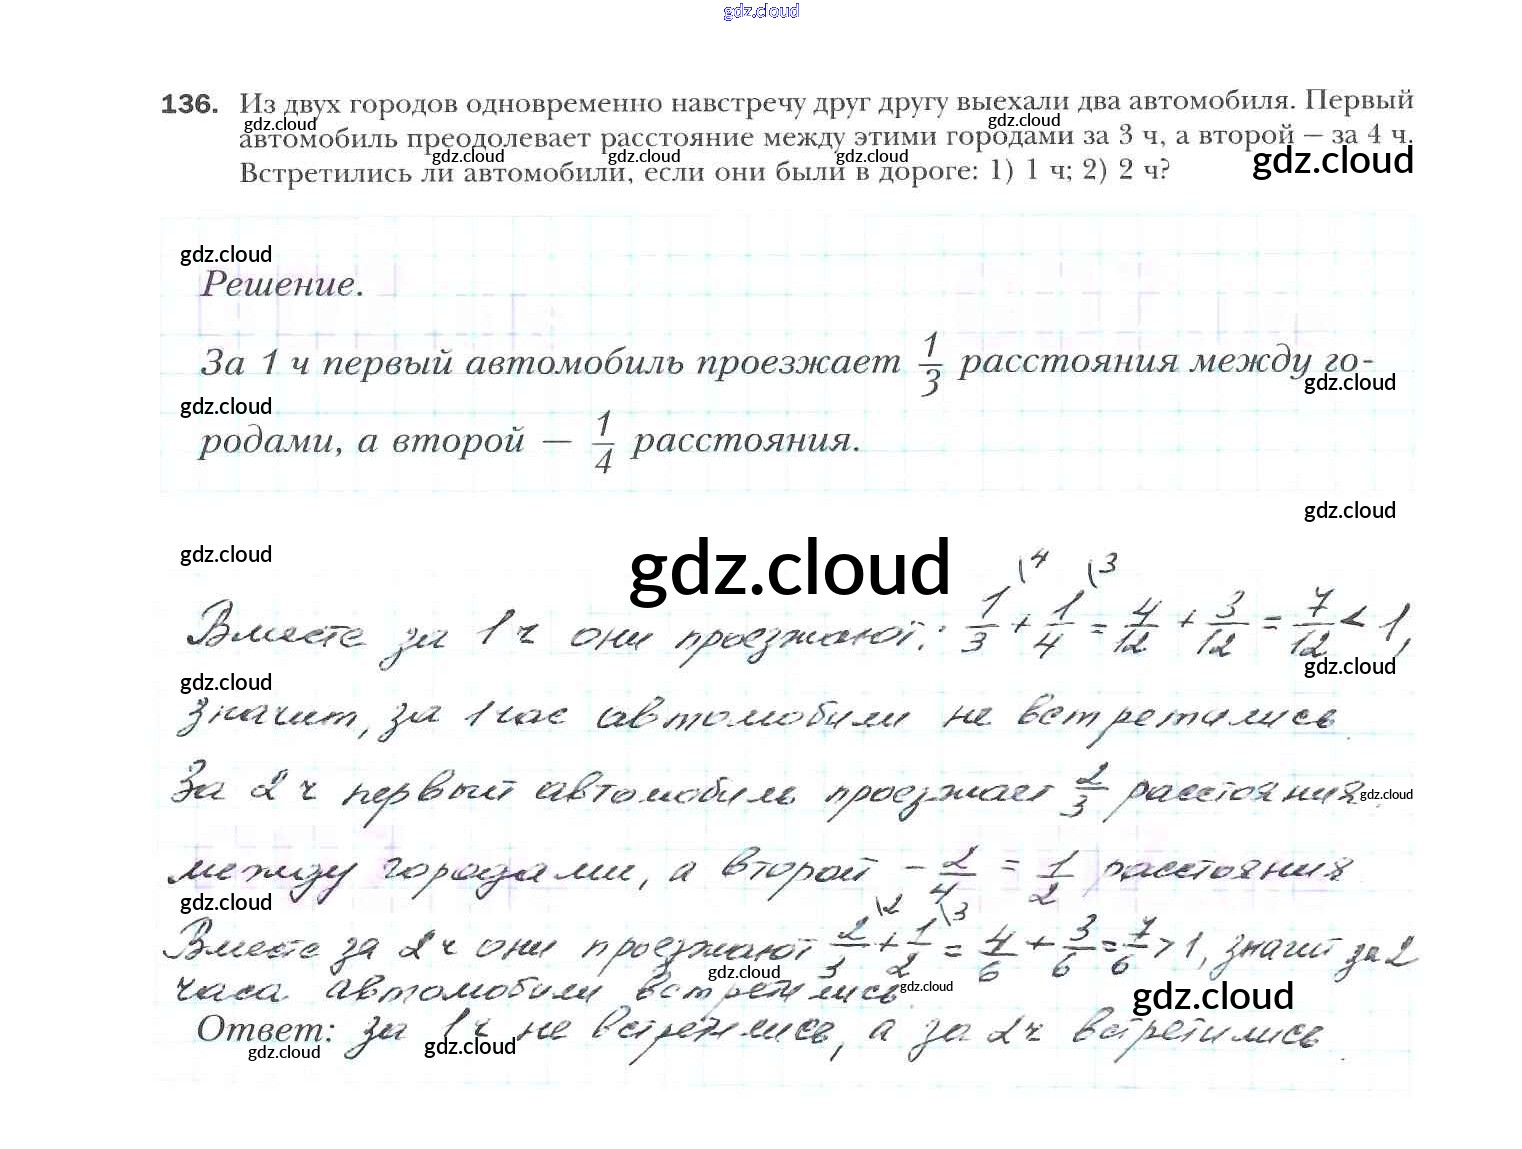 gdz.cloud
136. Из двух городов одновременно навстречу друг другу выехали два автомобиля. Первый
gdz.cloud gdz.cloud
автомобиль преодолевает расстояние между этими городами за 3 ч, а второй – за 4 ч.
gdz.cloud gdz.cloud gdz.cloud gdz.cloud
Встретились ли автомобили, если они были в дороге: 1) 1 ч; 2) 2 ч?
gdz.cloud
Решение.
За 1 ч первый автомобиль проезжает 1/3 расстояния между го-
gdz.cloud
gdz.cloud
родами, а второй — 1/4 расстояния.
gdz.cloud
gdz.cloud
gdz.cloud
Вместе за 1 ч они проезжают: 1/3 \4 + 1/4 \3 = 4/12 + 3/12 = 7/12 < 1,
gdz.cloud
gdz.cloud
значит, за 1 час автомобили не встретились.
За 2 ч первый автомобиль проезжает 2/3 расстояния
gdz.cloud
между городами, а второй – 2/4 = 1/2 расстояния
gdz.cloud
Вместе за 2 ч они проезжают 2/3 \2 + 1/2 \3 = 4/6 + 3/6 = 7/6 > 1, значит за 2
gdz.cloud
часа автомобили встретились.
gdz.cloud gdz.cloud
Ответ: за 1 ч не встретились, а за 2 ч встретились.
gdz.cloud gdz.cloud